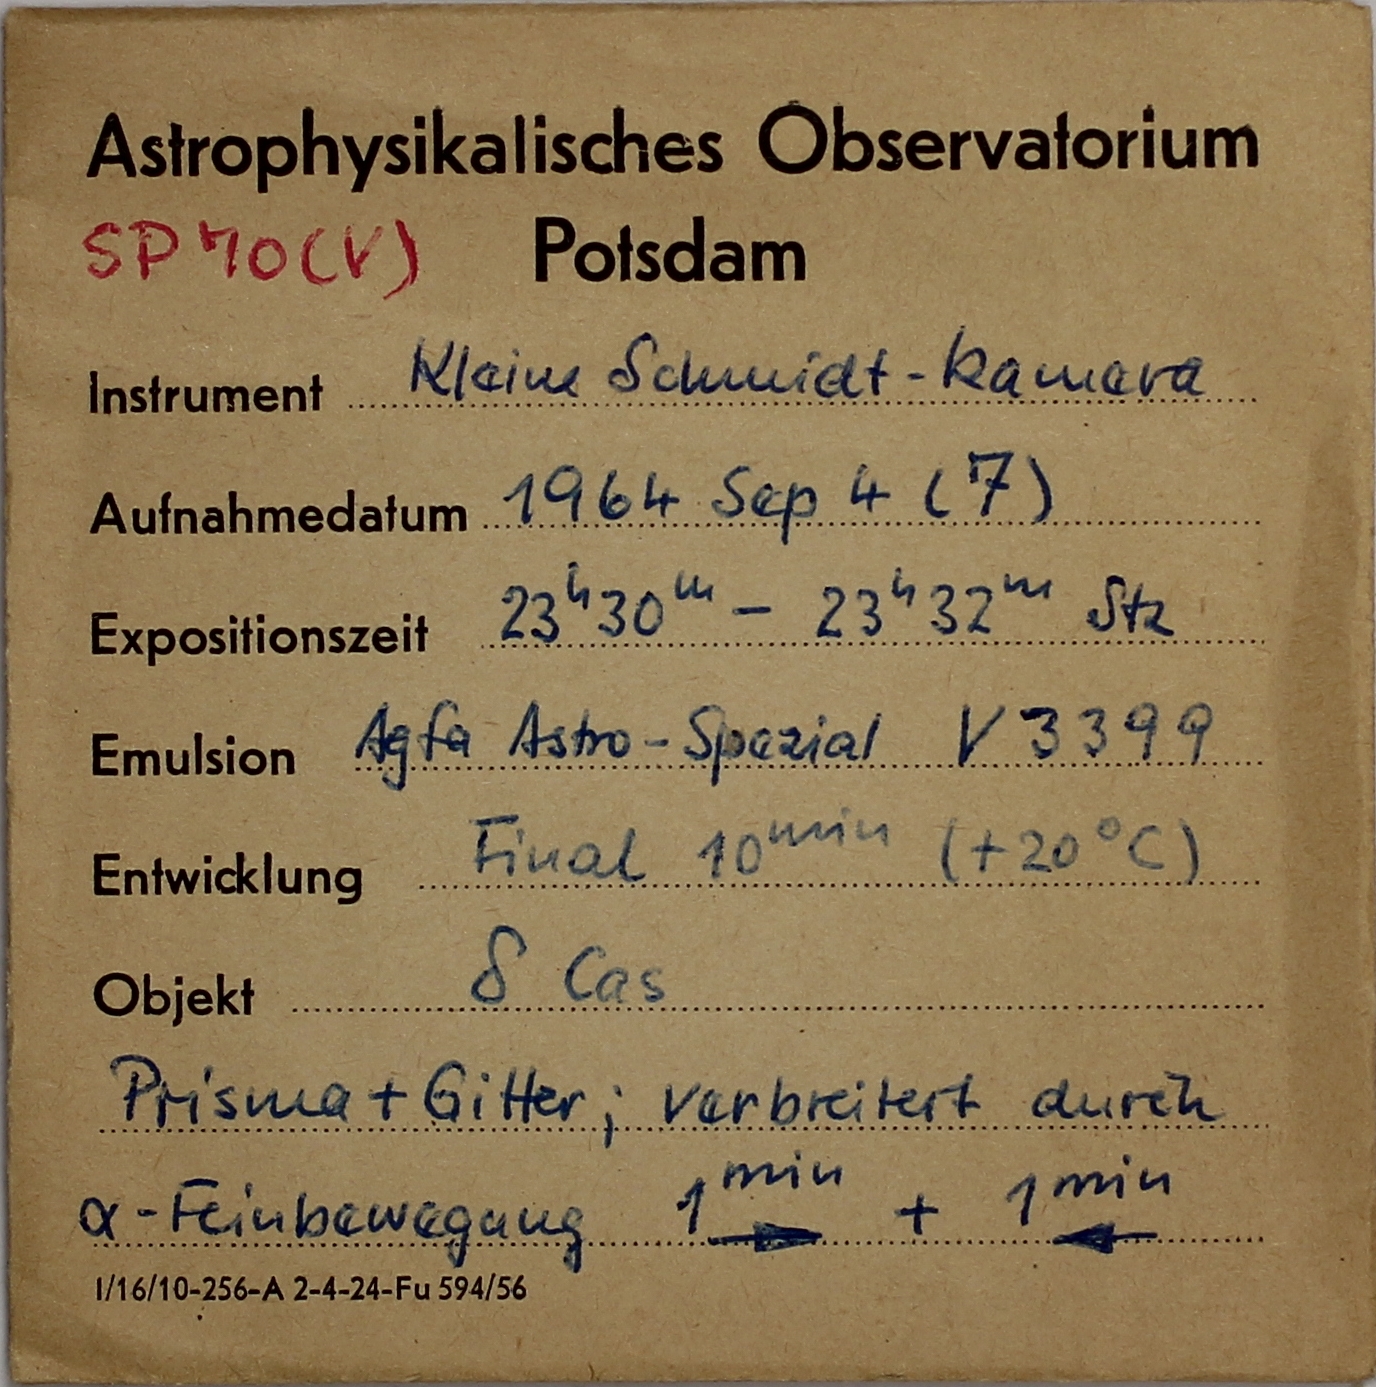 Astrophysikalisches Observatorium
SP 70 (V) Potsdam
Instrument Kleine Schmidt-Kamera
Aufnahmedatum 1964 Sep 4 (7)
Expositionszeit 23ʰ30ᵐ – 23ʰ32ᵐ Stz
Emulsion Agfa Astro-Spezial V 3399
Entwicklung Final 10ᵐⁱⁿ (+20°C)
Objekt δ Cas
Prisma + Gitter; verbreitert durch
α-Feinbewegung 1ᵐⁱⁿ → + 1ᵐⁱⁿ ←
I/16/10-256-A 2-4-24-Fu 594/56